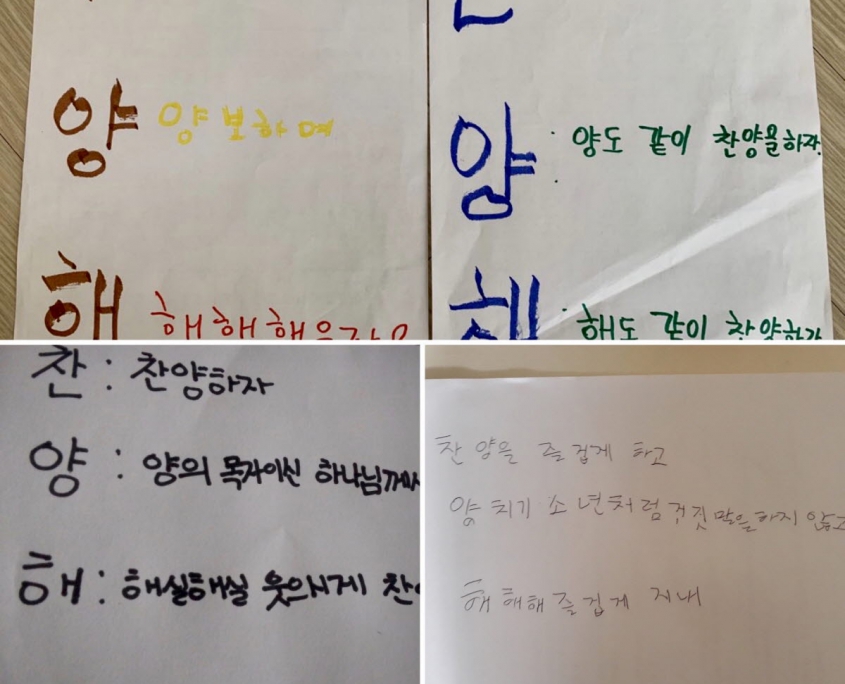 양 양보하며
해 해해해
양 : 양도 같이 찬양을하자.
해 : 해도 같이 찬양하자
찬 : 찬양하자
양 : 양의 목자이신 하나님께서
해 : 해실해실 웃으시게
찬양을 즐겁게 하고
양치기 소년처럼 거짓말을하지 않고
해해해즐겁게 지내